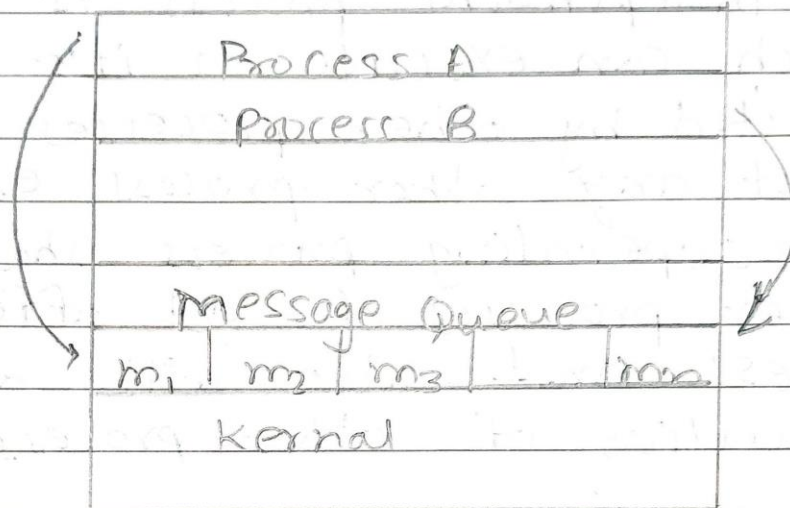 Process A
Process B
Message Queue
m1 m2 m3 mn
Kernal